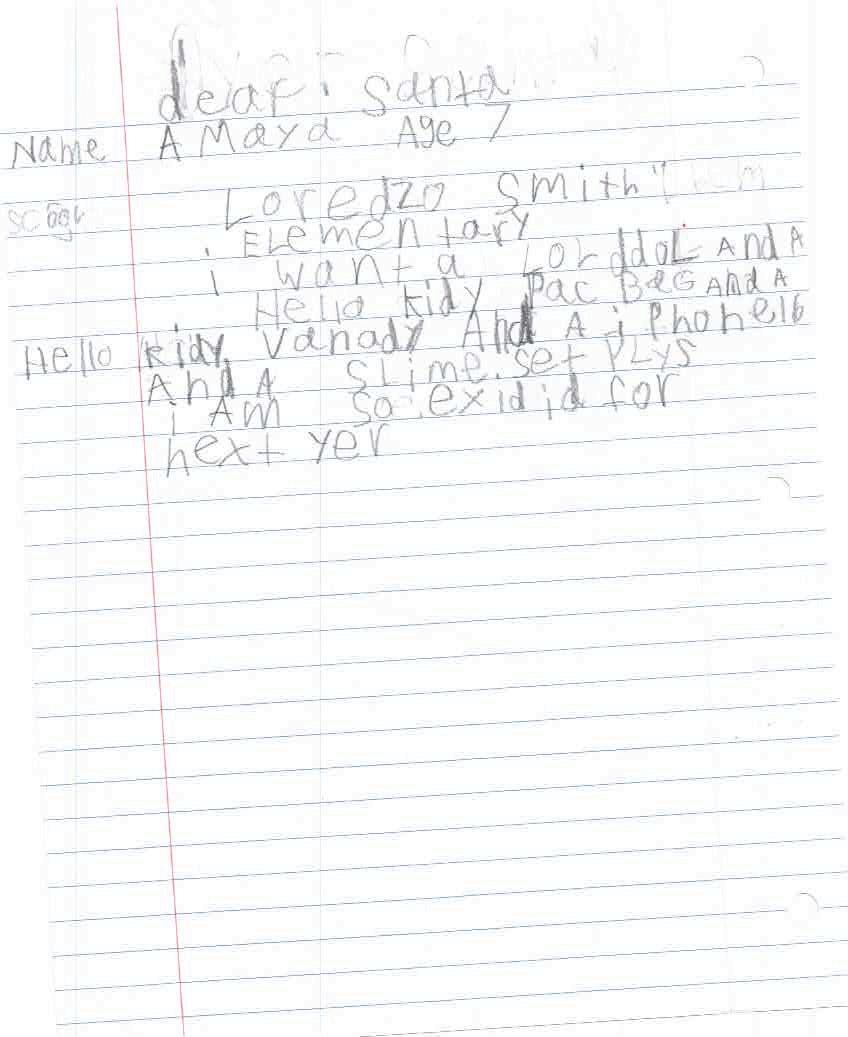 dear santa
Name AMaya Age 7
Loredzo Smith
ELementary
i want a Lorddol And A
Hello kidy pac BaG And A
Hello kidy vanady And A iPhone16
And A SLime set pLys
i AM so exidid for
next yer